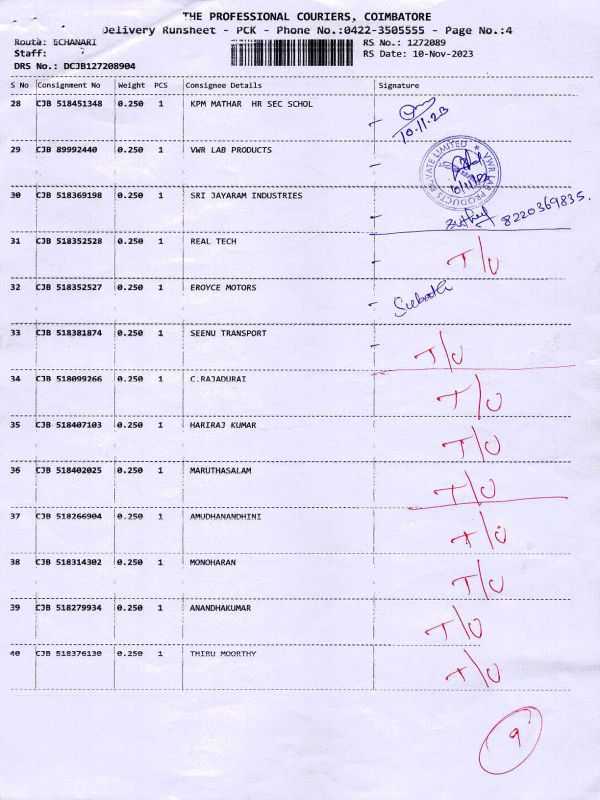 THE PROFESSIONAL COURIERS, COIMBATORE
Delivery Runsheet - PCK - Phone No.:0422-3505555 - Page No.:4
Route: ECHANARI RS No.: 1272089
Staff: RS Date: 10-Nov-2023
DRS No.: DCJB127208904
S No Consignment No Weight PCS Consignee Details Signature
28 CJB 518451348 0.250 1 KPM MATHAR HR SEC SCHOL
10.11.23
29 CJB 89992440 0.250 1 VWR LAB PRODUCTS
VWR LAB PRODUCTS PRIVATE LIMITED
10/11/23
30 CJB 518369198 0.250 1 SRI JAYARAM INDUSTRIES
8220369835.
31 CJB 518352528 0.250 1 REAL TECH T/U
32 CJB 518352527 0.250 1 EROYCE MOTORS
33 CJB 518381874 0.250 1 SEENU TRANSPORT T/U
34 CJB 518099266 0.250 1 C.RAJADURAI T/U
35 CJB 518407103 0.250 1 HARIRAJ KUMAR T/U
36 CJB 518402025 0.250 1 MARUTHASALAM T/U
37 CJB 518266904 0.250 1 AMUDHANANDHINI T/U
38 CJB 518314302 0.250 1 MONOHARAN T/U
39 CJB 518279934 0.250 1 ANANDHAKUMAR T/U
40 CJB 518376130 0.250 1 THIRU MOORTHY T/U
9